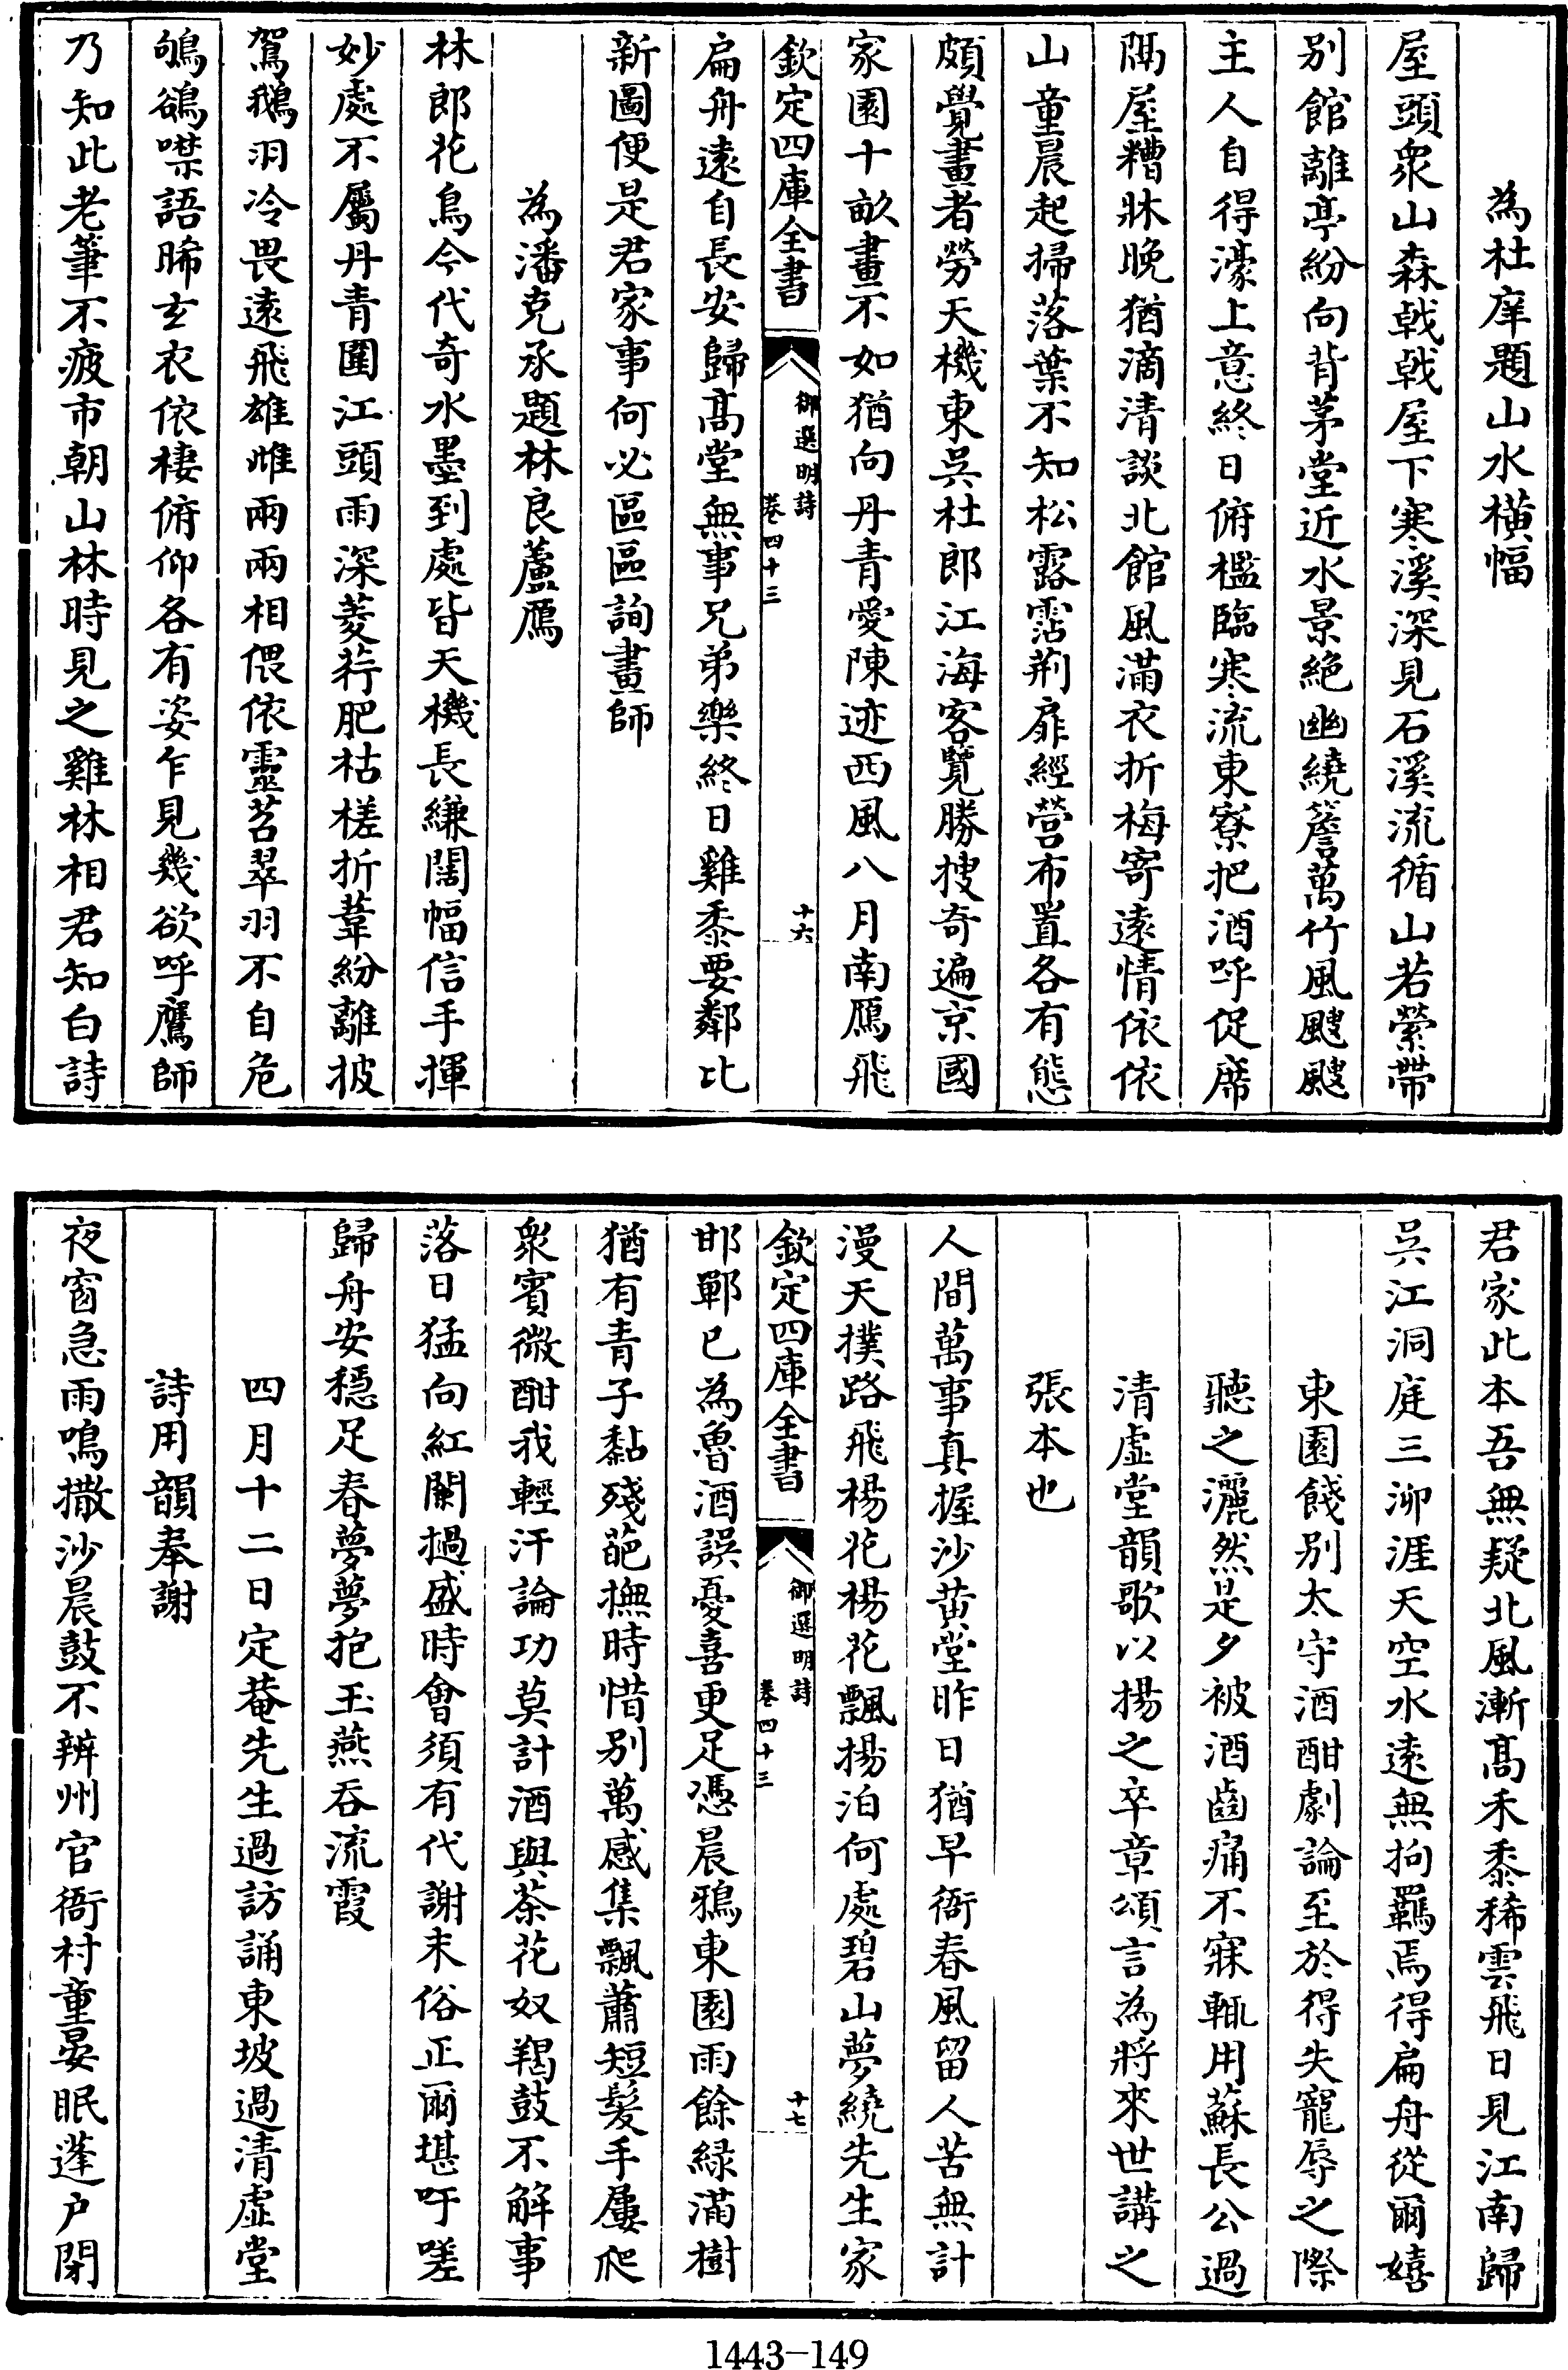 為杜庠題山水橫幅
屋頭衆山森戟戟屋下寒溪深見石溪流循山若縈帶
别館離亭紛向背茅堂近水景絶幽繞簷萬竹風颼颼
主人自得濠上意終日俯檻臨寒流東寮把酒呼促席
隔屋糟牀晚猶滴清談北館風滿衣折梅寄遠情依依
山童晨起掃落葉不知松露霑荆扉經營布置各有態
頗覺畫者勞天機東吳杜郎江海客覽勝搜奇遍京國
家園十畝畫不如猶向丹青愛陳迹西風八月南鴈飛
欽定四庫全書
御選明詩
卷四十三
十六
扁舟遠自長安歸髙堂無事兄弟樂終日雞黍要鄰比
新圖便是君家事何必區區詢畫師
為潘克承題林良蘆鴈
林郎花鳥今代奇水墨到處皆天機長縑闊幅信手揮
妙處不屬丹青圍江頭雨深菱荇肥枯槎折葦紛離披
駕鵝羽冷畏遠飛雄雌兩兩相偎依靈苕翠羽不自危
鴝鵒噤語晞玄衣依棲俯仰各有姿乍見幾欲呼鷹師
乃知此老筆不疲市朝山林時見之雞林相君知白詩
君家此本吾無疑北風漸髙禾黍稀雲飛日見江南歸
吳江洞庭三泖涯天空水遠無拘羈焉得扁舟從爾嬉
東園餞别太守酒酣劇論至於得失寵辱之際
聽之灑然是夕被酒齒痛不寐輒用蘇長公過
清虛堂韻歌以揚之卒章頌言為將來世講之
張本也
人間萬事真握沙黄堂昨日猶早衙春風留人苦無計
漫天撲路飛楊花楊花飄揚泊何處碧山夢繞先生家
欽定四庫全書
御選明詩
卷四十三
十七
邯鄲已為魯酒誤憂喜更足憑晨鴉東園雨餘緑滿樹
猶有青子黏殘葩撫時惜别萬感集飄蕭短髪手屢爬
衆賓微酣我輕汗論功莫計酒與茶花奴羯鼓不解事
落日猛向紅闌撾盛時會須有代謝末俗正爾堪吁嗟
歸舟安穏足春夢夢抱玉燕吞流霞
四月十二日定菴先生過訪誦東坡過清虛堂
詩用韻奉謝
夜窗急雨鳴撒沙晨鼓不辨州官衙村童晏眠蓬户閉
1443-149